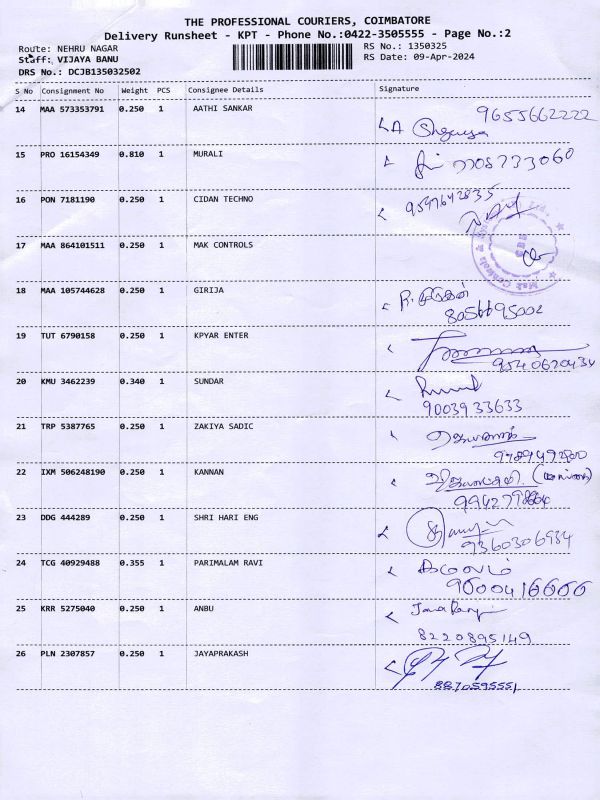 THE PROFESSIONAL COURIERS, COIMBATORE
Delivery Runsheet - KPT - Phone No.:0422-3505555 - Page No.:2
Route: NEHRU NAGAR
RS No.: 1350325
Staff: VIJAYA BANU
RS Date: 09-Apr-2024
DRS No.: DCJB135032502
S No Consignment No Weight PCS Consignee Details Signature
14 MAA 573353791 0.250 1 AATHI SANKAR 9655662222
15 PRO 16154349 0.810 1 MURALI 7708733060
16 PON 7181190 0.250 1 CIDAN TECHNO
17 MAA 864101511 0.250 1 MAK CONTROLS
18 MAA 105744628 0.250 1 GIRIJA 8056695002
19 TUT 6790158 0.250 1 KPYAR ENTER 9540620434
20 KMU 3462239 0.340 1 SUNDAR 9003933633
21 TRP 5387765 0.250 1 ZAKIYA SADIC
22 IXM 506248190 0.250 1 KANNAN
23 DDG 444289 0.250 1 SHRI HARI ENG 9360306984
24 TCG 40929488 0.355 1 PARIMALAM RAVI 9000416666
25 KRR 5275040 0.250 1 ANBU 8220895149
26 PLN 2307857 0.250 1 JAYAPRAKASH 8870595551